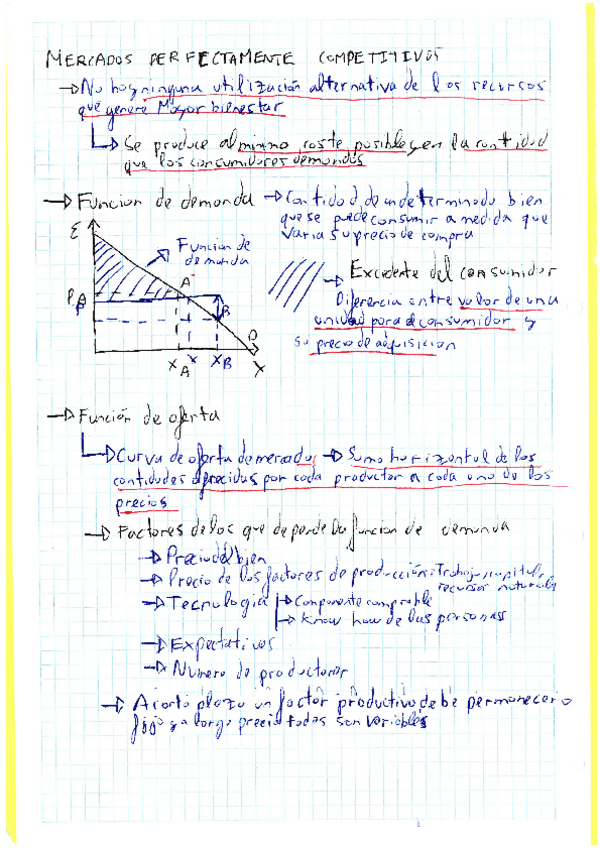 MERCADOS PERFECTAMENTE COMPETITIVOS
→ No hay ninguna utilización alternativa de los recursos
que genere Mayor bienestar
→ Se produce al mínimo coste posible, en la cantidad
que los consumidores demandas
→ Funcion de demanda → Cantidad de un determinado bien
que se puede consumir a medida que
varia su precio de compra
€
Funcion de
demanda
→ Excedente del consumidor
Diferencia entre valor de una
unidad para el consumidor y
su precio de adquisicion
P A
P
A
B
D
X A
X
X B
X
→ Función de oferta
→ Curva de oferta de mercado → Suma horizontal de las
cantidades ofrecidas por cada productor a cada uno de los
precios
→ Factores de los que depende la funcion de demanda
→ Precio del bien
→ Precio de los factores de producción: Trabajo, capital,
recursos naturales
→ Tecnologia → Componente comprable
→ Know how de las personas
→ Expectativas
→ Numero de productores
→ A corto plazo un factor productivo debe permanecer
fijo y a largo precio todas son variables